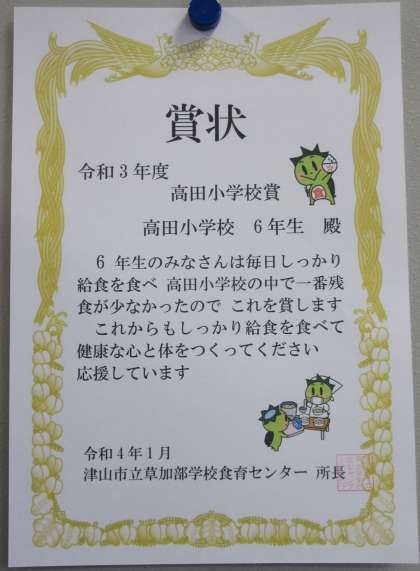 賞状
令和3年度
高田小学校賞
高田小学校 6年生 殿
6 年生のみなさんは毎日しっかり
給食を食べ 高田小学校の中で一番残
食が少なかったので これを賞します
これからもしっかり給食を食べて
健康な心と体をつくってください
応援しています
令和4年1月
津山市立草加部学校食育センター 所長